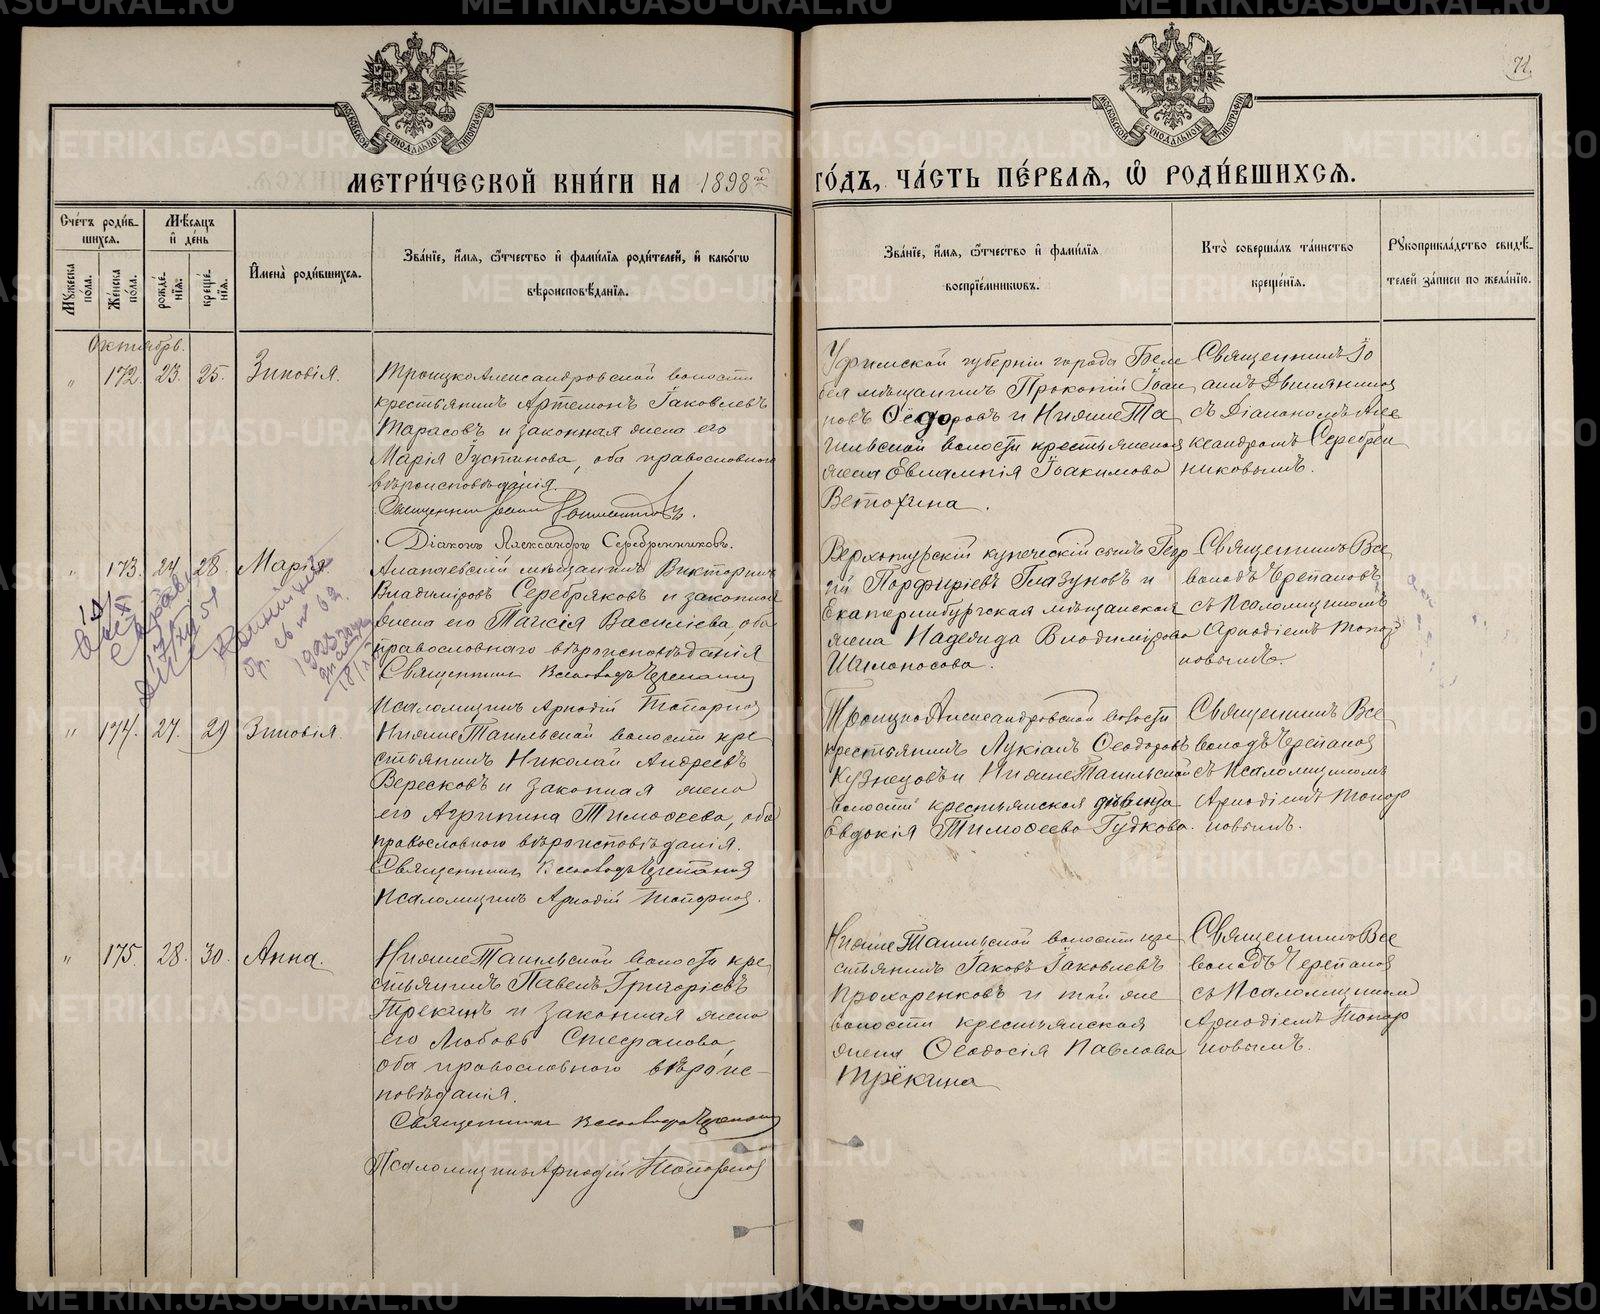 71.
МОСКОВСКОЙ СѴНОДАЛЬНОЙ ТИПОГРАФІИ
МОСКОВСКОЙ СѴНОДАЛЬНОЙ ТИПОГРАФІИ
МЕТРИ́ЧЕСКОЙ КНИ́ГИ НА 1898й
ГО́ДЪ, ЧА́СТЬ ПЕ́РВАѦ, Ѡ҆ РОДИ́ВШИХСѦ.
Сче́тъ роди́в-
шихсѧ.
Мꙋ́жеска по́ла.
Же́нска по́ла.
Мѣ́сѧцъ
и҆ де́нь
рожде́-
нїѧ:
креще́-
нїѧ.
И҆мена̀ роди́вшихсѧ.
Зва́нїе, и҆́мѧ, ѻ҆́тчество и҆ фамі́лїѧ роди́телей, и҆ како́гѡ
вѣроисповѣ́данїѧ.
Зва́нїе, и҆́мѧ, ѻ҆́тчество и҆ фамі́лїѧ
воспрїе́мникѡвъ.
Кто̀ соверша́лъ та́инство
креще́нїѧ.
Рꙋкоприкла́дство свидѣ́-
телей за́писи по жела́нїю.
Октябрь.
" 172. 23. 25. Зиновія.
ТроицкоАлександровской волости
крестьянинъ Артемонъ Іаковлевъ
Тарасовъ и законная жена его
Марія Іустинова, оба православнаго
вѣроисповѣданія.
Діаконъ Александръ Серебренниковъ.
Уфимской губерніи города Беле
бея мѣщанинъ Прокопій Іоан
новъ Ѳедоровъ и НижнеТа
гильской волости крестьянская
жена Евлампія Іоакимова
Ветохина.
Священникъ Іо
аннъ Двинянинов
съ Діакономъ Але
ксандромъ Серебрен
никовымъ.
" 173. 24. 28. Марія
Алапаевскій мѣщанинъ Викторинъ
Владиміровъ Серебряковъ и законная
жена его Таисія Василіева, оба
православнаго вѣроисповѣданія
Священникъ Всеволодъ Черепановъ
Псаломщикъ Аркадій Топорков
Верхотурскій купеческій сынъ Геор
гій Порфиріевъ Глазуновъ и
Екатеринбургская мѣщанская
жена Надежда Владимірова
Шилоносова.
Священникъ Все
володъ Черепановъ
съ Псаломщикомъ
Аркадіемъ Топор
ковымъ.
" 174. 27. 29 Зиновія.
НижнеТагильской волости кре
стьянинъ Николай Андреевъ
Вересковъ и законная жена
его Агрипина Тимоѳеева, оба
православнаго вѣроисповѣданія.
Священникъ Всеволодъ Черепанов
Псаломщикъ Аркадій Топорков.
ТроицкоАлександровской волости
крестьянинъ Лукіанъ Ѳеодоровъ
Кузнецовъ и НижнеТагильской
волости крестьянская дѣвица
Евдокія Тимоѳеева Гудкова.
Священникъ Все
володъ Черепанов
съ Псаломщикомъ
Аркадіемъ Топор
ковымъ.
" 175. 28. 30. Анна.
НижнеТагильской волости кре
стьянинъ Павелъ Григоріевъ
Трекинъ и законная жена
его Любовь Стефанова,
оба православнаго вѣроис-
повѣданія.
Священникъ Всеволодъ Черепанов
Псаломщикъ Аркадій Топорков
НижнеТагильской волости кре
стьянинъ Іаковъ Іаковлевъ
Прохоренковъ и той же
волости крестьянская
жена Ѳеодосія Павлова
Трёкина
Священникъ Все
володъ Черепанов
съ Псаломщикомъ
Аркадіемъ Топор
ковымъ.
METRIKI.GASO-URAL.RU